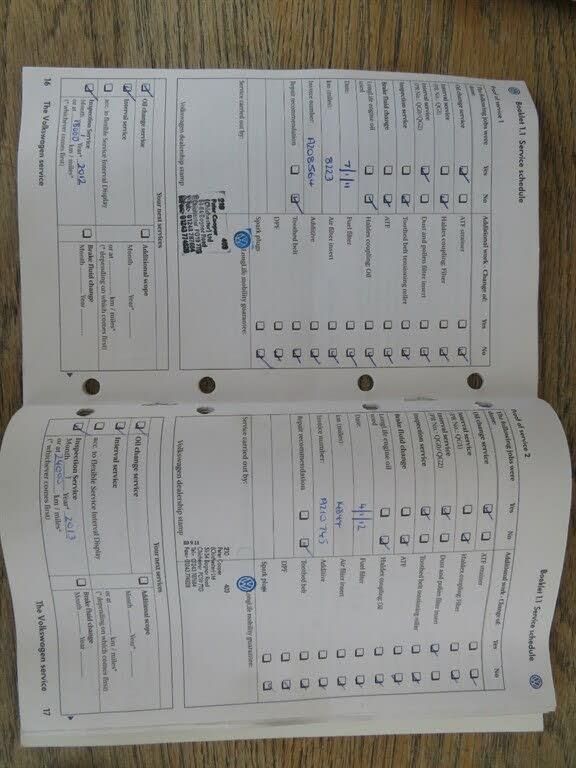 Booklet 1.1 Service schedule
Proof of service 1
The following jobs were done: Yes No
Oil change service
Interval service
(PR No.: QG1)
Interval service
(PR No.: QG0/QG2)
Inspection service
Brake fluid change
LongLife engine oil used
Date: 7/1/11
km (miles): 8223
Invoice number: A208564
Repair recommendation
Service carried out by:
Volkswagen dealership stamp
Additional work - Change of: Yes No
ATF strainer
Haldex coupling: Filter
Dust and pollen filter insert
Toothed belt tensioning roller
ATF
Haldex coupling: Oil
Fuel filter
Air filter insert
Additive
Toothed belt
DPF
Spark plugs
LongLife mobility guarantee:
Your next services
Oil change service
Interval service
acc. to flexible Service Interval Display
Inspection Service
Month Year* 2012
or at 18000 km / miles*
(* whichever comes first)
Additional scope
Month Year
or at km / miles*
(* depending on which comes first)
Brake fluid change
Month Year
16 The Volkswagen service
Booklet 1.1 Service schedule
Proof of service 2
The following jobs were done: Yes No
Oil change service
Interval service
(PR No.: QG1)
Interval service
(PR No.: QG0/QG2)
Inspection service
Brake fluid change
LongLife engine oil used
Date: 4/1/12
km (miles):
Invoice number: A210745
Repair recommendation
Service carried out by:
Volkswagen dealership stamp
Additional work - Change of: Yes No
ATF strainer
Haldex coupling: Filter
Dust and pollen filter insert
Toothed belt tensioning roller
ATF
Haldex coupling: Oil
Fuel filter
Air filter insert
Additive
Toothed belt
DPF
Spark plugs
LongLife mobility guarantee:
210 403
Peter Cooper
(Chichester) Ltd
Your next services
Oil change service
Interval service
acc. to flexible Service Interval Display
Inspection Service
Month Year* 2013
or at km / miles*
(* whichever comes first)
Additional scope
Month Year
or at km / miles*
(* depending on which comes first)
Brake fluid change
Month Year
The Volkswagen service 17